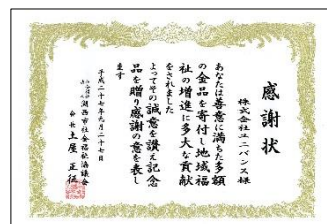 感謝状
株式会社ユニバンス様
あなたは善意に満ちた多額
の金品を寄付し地域福
祉の増進に多大な貢献
をされました
よってその誠意を讃え記念
品を贈り感謝の意を表し
ます
平成二十七年九月二十七日
社会福祉法人
湖西市社会福祉協議会
会長 土屋